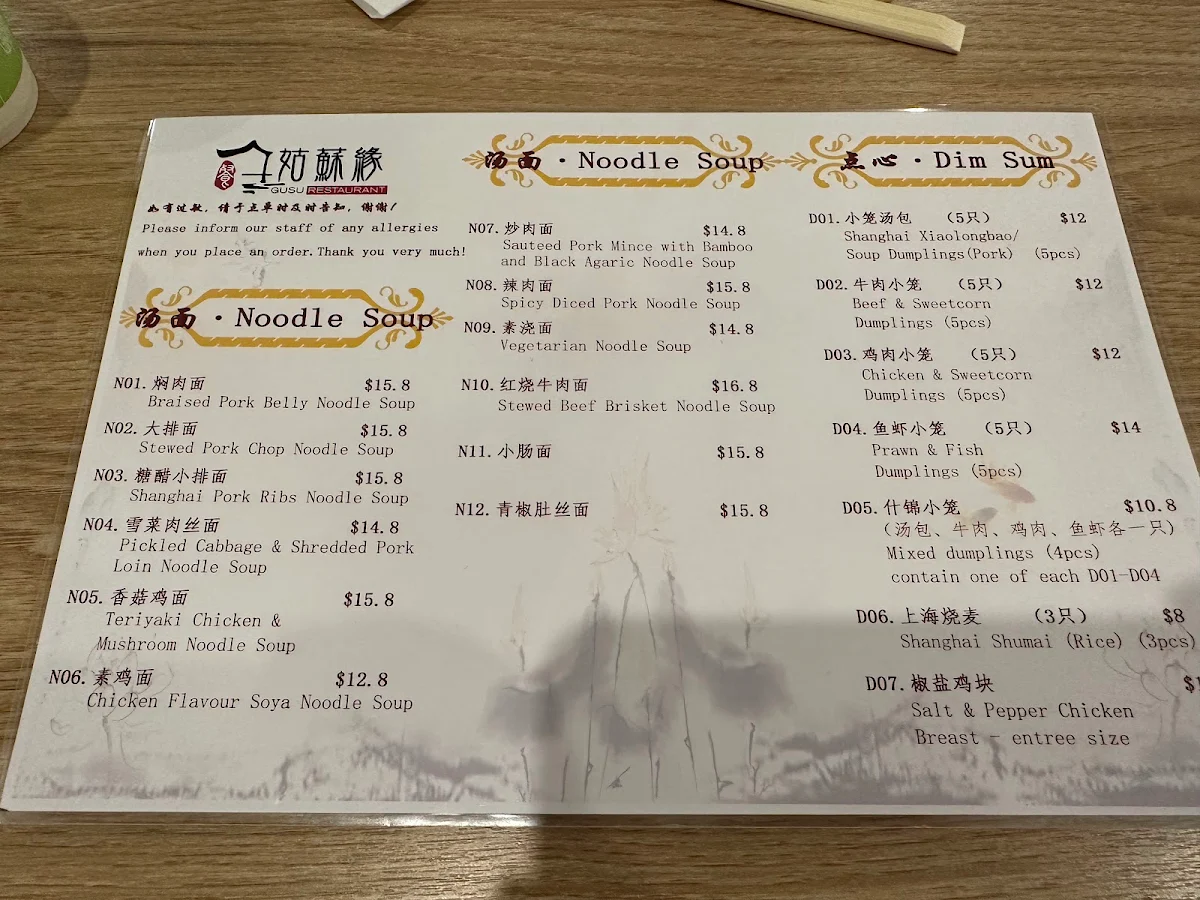 姑蘇緣
GUSU RESTAURANT
如有过敏，请于点单时及时告知，谢谢！
Please inform our staff of any allergies
when you place an order.Thank you very much!
汤面·Noodle Soup
N01.焖肉面 $15.8
Braised Pork Belly Noodle Soup
N02.大排面 $15.8
Stewed Pork Chop Noodle Soup
N03.糖醋小排面 $15.8
Shanghai Pork Ribs Noodle Soup
N04.雪菜肉丝面 $14.8
Pickled Cabbage & Shredded Pork
Loin Noodle Soup
N05.香菇鸡面 $15.8
Teriyaki Chicken &
Mushroom Noodle Soup
N06.素鸡面 $12.8
Chicken Flavour Soya Noodle Soup
汤面·Noodle Soup
N07.炒肉面 $14.8
Sauteed Pork Mince with Bamboo
and Black Agaric Noodle Soup
N08.辣肉面 $15.8
Spicy Diced Pork Noodle Soup
N09.素浇面 $14.8
Vegetarian Noodle Soup
N10.红烧牛肉面 $16.8
Stewed Beef Brisket Noodle Soup
N11.小肠面 $15.8
N12.青椒肚丝面 $15.8
点心·Dim Sum
D01.小笼汤包 （5只） $12
Shanghai Xiaolongbao/
Soup Dumplings(Pork) (5pcs)
D02.牛肉小笼 （5只） $12
Beef & Sweetcorn
Dumplings (5pcs)
D03.鸡肉小笼 （5只） $12
Chicken & Sweetcorn
Dumplings (5pcs)
D04.鱼虾小笼 （5只） $14
Prawn & Fish
Dumplings (5pcs)
D05.什锦小笼 $10.8
（汤包、牛肉、鸡肉、鱼虾各一只）
Mixed dumplings (4pcs)
contain one of each D01-D04
D06.上海烧麦 （3只） $8
Shanghai Shumai (Rice) (3pcs)
D07.椒盐鸡块
Salt & Pepper Chicken
Breast - entree size